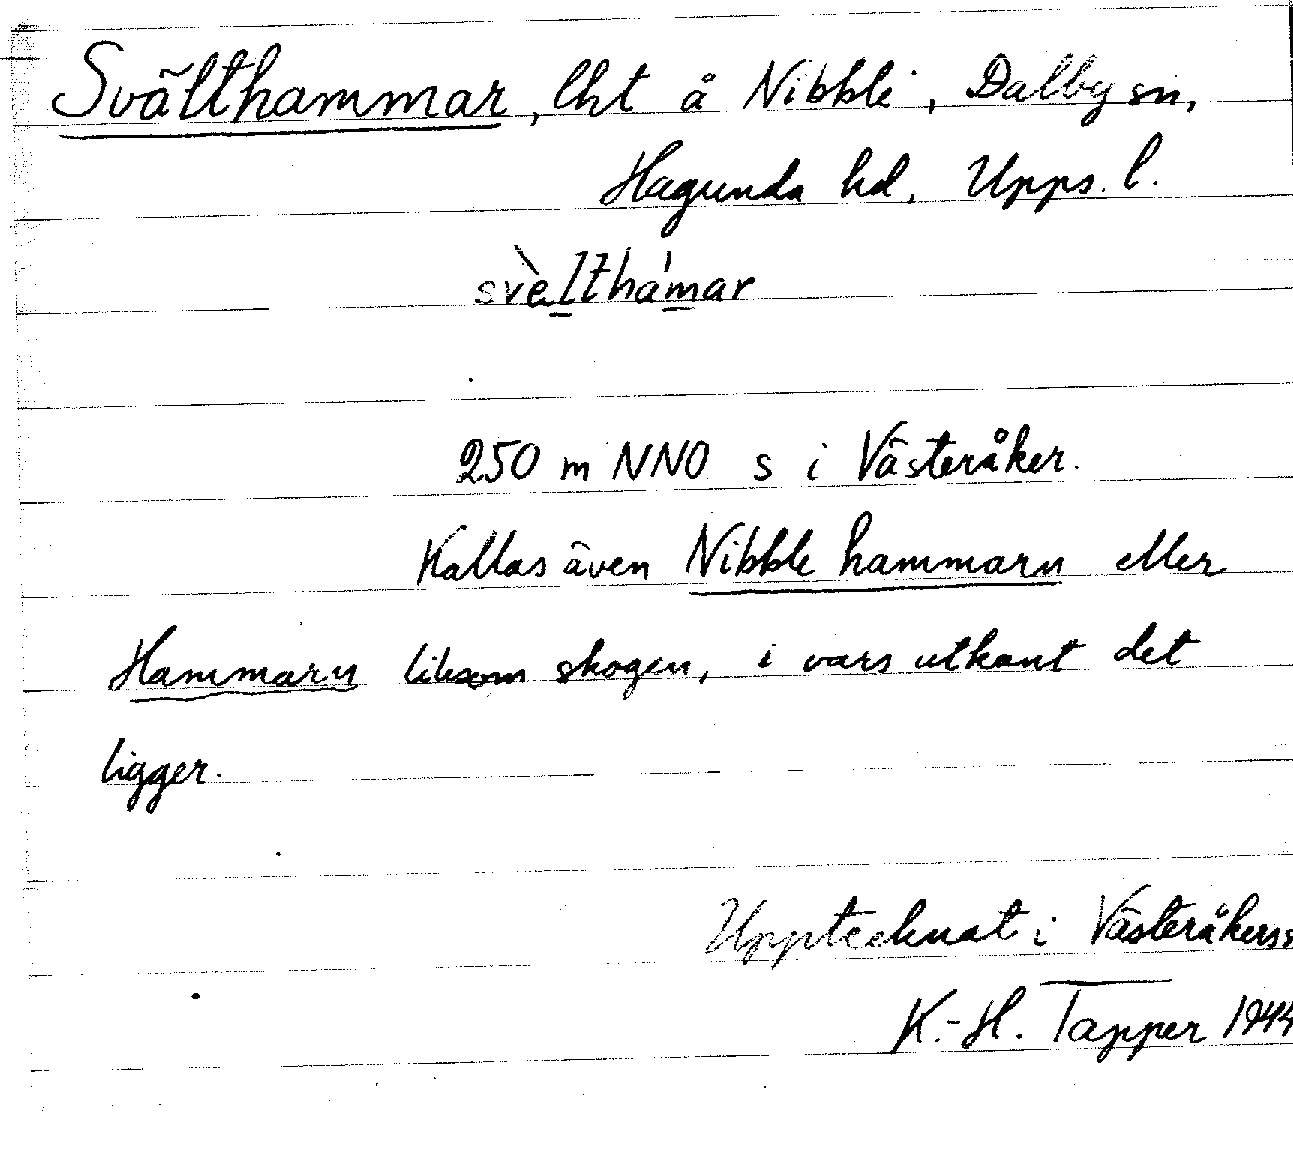 Svälthammar, lht å Nibble, Dalby sn,
Hagunda hd, Upps. l.
svèlthámar
250 m NNO s i Västeråker.
Kallas även Nibble hammarn eller
Hammarn liksom skogen, i vars utkant det
ligger.
Upptecknat i Västeråkers s
K.-H. Tapper 1944